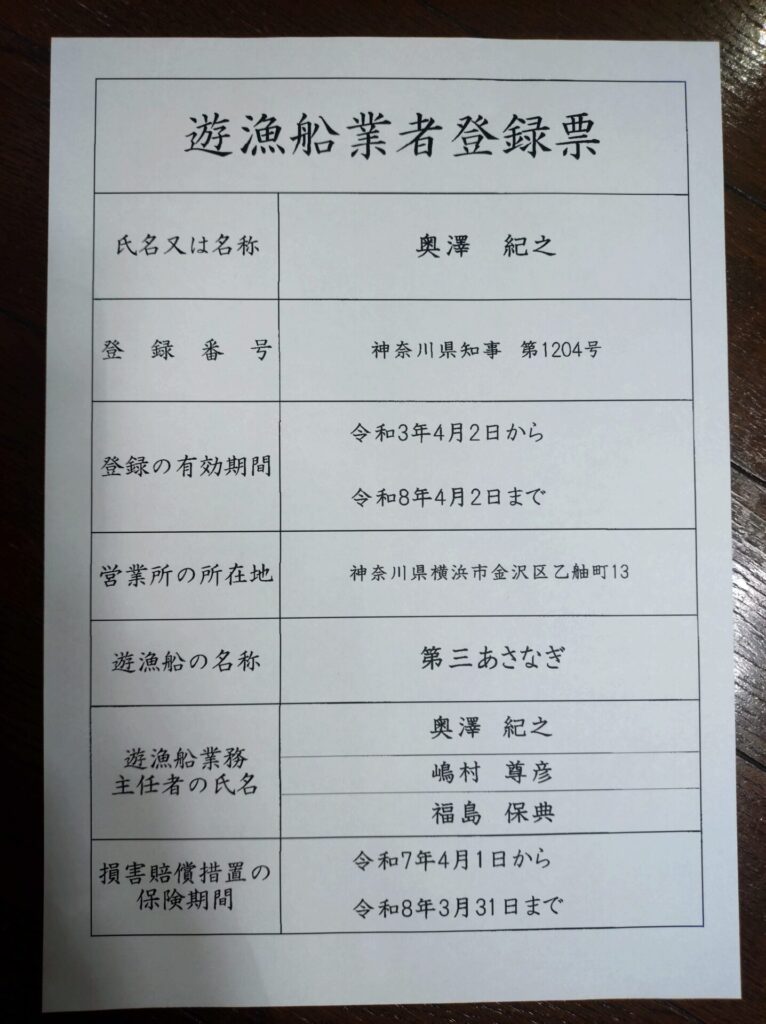 遊漁船業者登録票
氏名又は名称
奥澤　紀之
登　録　番　号
神奈川県知事　第1204号
登録の有効期間
令和3年4月2日から
令和8年4月2日まで
営業所の所在地
神奈川県横浜市金沢区乙舳町13
遊漁船の名称
第三あさなぎ
遊漁船業務
主任者の氏名
奥澤　紀之
嶋村　尊彦
福島　保典
損害賠償措置の
保険期間
令和7年4月1日から
令和8年3月31日まで